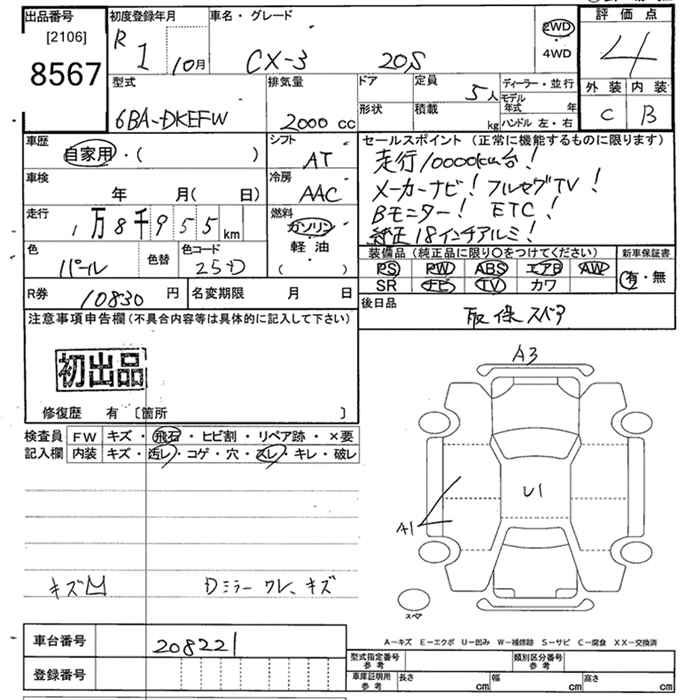 出品番号 初度登録年月 車名・グレード 2WD 評価点
[2106] R 1 10月 CX-3 20S ・4WD 4
8567 型式 排気量 ドア 定員 5人 ディーラー・並行 外装 内装
6BA-DKEFW 2000cc 形状 積載 kg モデル年式 年 C B
ハンドル 左・右
車歴 自家用・( ) シフト AT セールスポイント(正常に機能するものに限ります)
車検 年 月( 日) 冷房 AAC 走行10000km台!
メーカーナビ! フルセグTV!
走行 1万8千955km 燃料 ガソリン Bモニター! ETC!
軽・油 純正18インチアルミ!
色 パール 色替 色コード 25D ( ) 装備品(純正品に限り○をつけてください) 新車保証書
PS PW ABS エアB AW 有・無
R券 10830円 名変期限 月 日 SR ナビ TV カワ
注意事項申告欄(不具合内容等は具体的に記入して下さい) 後日品 取保スペア
初出品
修復歴 有 〔箇所 〕
A3
検査員 FW キズ・飛石・ヒビ割・リペア跡・×要
記入欄 内装 キズ・汚レ・コゲ・穴・スレ・キレ・破レ
U1
A1
キズ Dミラー ワレ、キズ
スペア
車台番号 208221
A-キズ E-エクボ U-凹み W-補修跡 S-サビ C-腐食 XX-交換済
型式指定番号 参考 類別区分番号 参考
登録番号 車庫証明用 参考 長さ cm 幅 cm 高さ cm